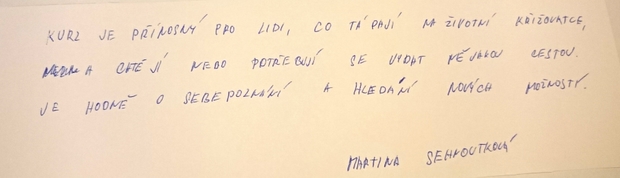 KURZ JE PŘÍNOSNÝ PRO LIDI, CO TÁPAJÍ NA ŽIVOTNÍ KŘIŽOVATCE,
A CHTĚJÍ NEBO POTŘEBUJÍ SE VYDAT NĚJAKOU CESTOU.
JE HODNĚ O SEBEPOZNÁNÍ A HLEDÁNÍ NOVÝCH MOŽNOSTÍ.
MARTINA